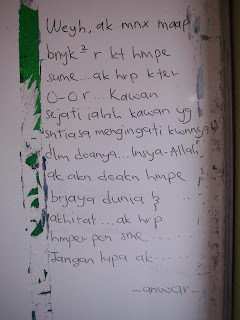 Weyh, ak mnx maap
bnyk² r kt hmpe
sume...ak hrp k ter
0-0r... Kawan
sejati ialah kawan yg
sntiasa mengingati kwnnya
dlm doanya...Insya-Allah,
ak akn doakn hmpe
brjaya dunia &
akhirat...ak hrp
hmpe pon sme......
Jangan lupa ak.....
-anwar-